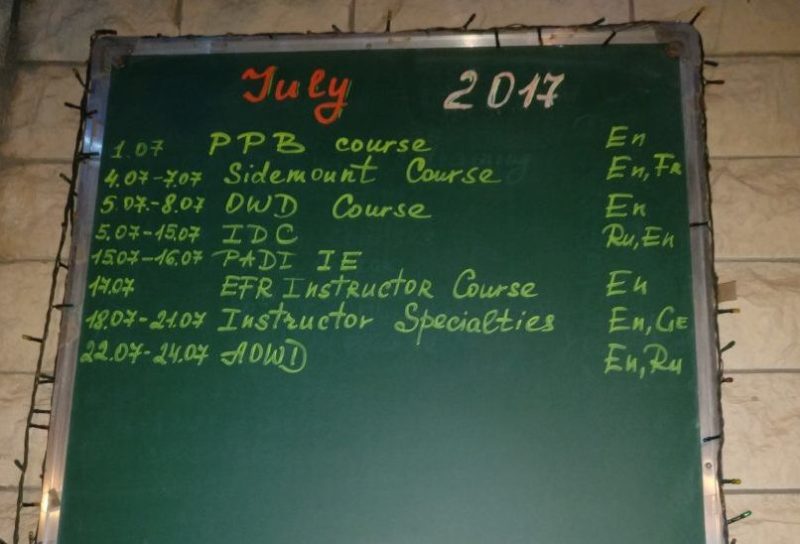 July 2017
1.07 PPB course En
4.07-7.07 Sidemount Course En, Fr
5.07-8.07 OWD Course En
5.07-15.07 IDC Ru, En
15.07-16.07 PADI IE
17.07 EFR Instructor Course En
18.07-21.07 Instructor Specialties En, Ge
22.07-24.07 AOWD En, Ru